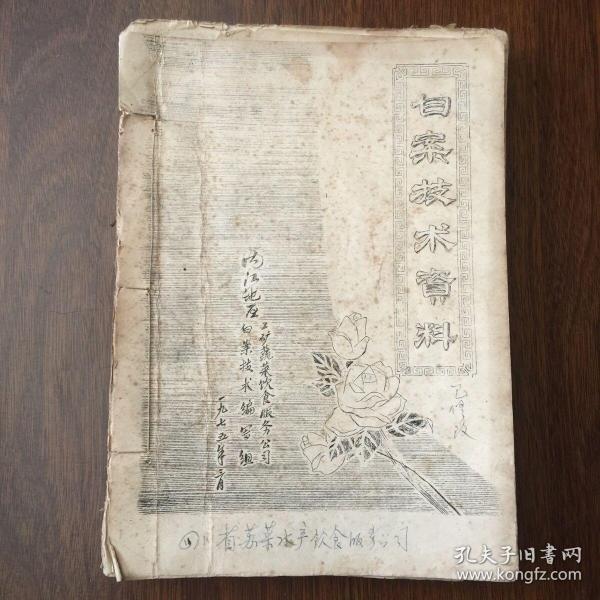 白案技术资料
内江地区
工矿蔬菜饮食服务公司
白案技术编写组
一九七五年二月
四川省蔬菜水产饮食服务公司
孔夫子旧书网
www.kongfz.com